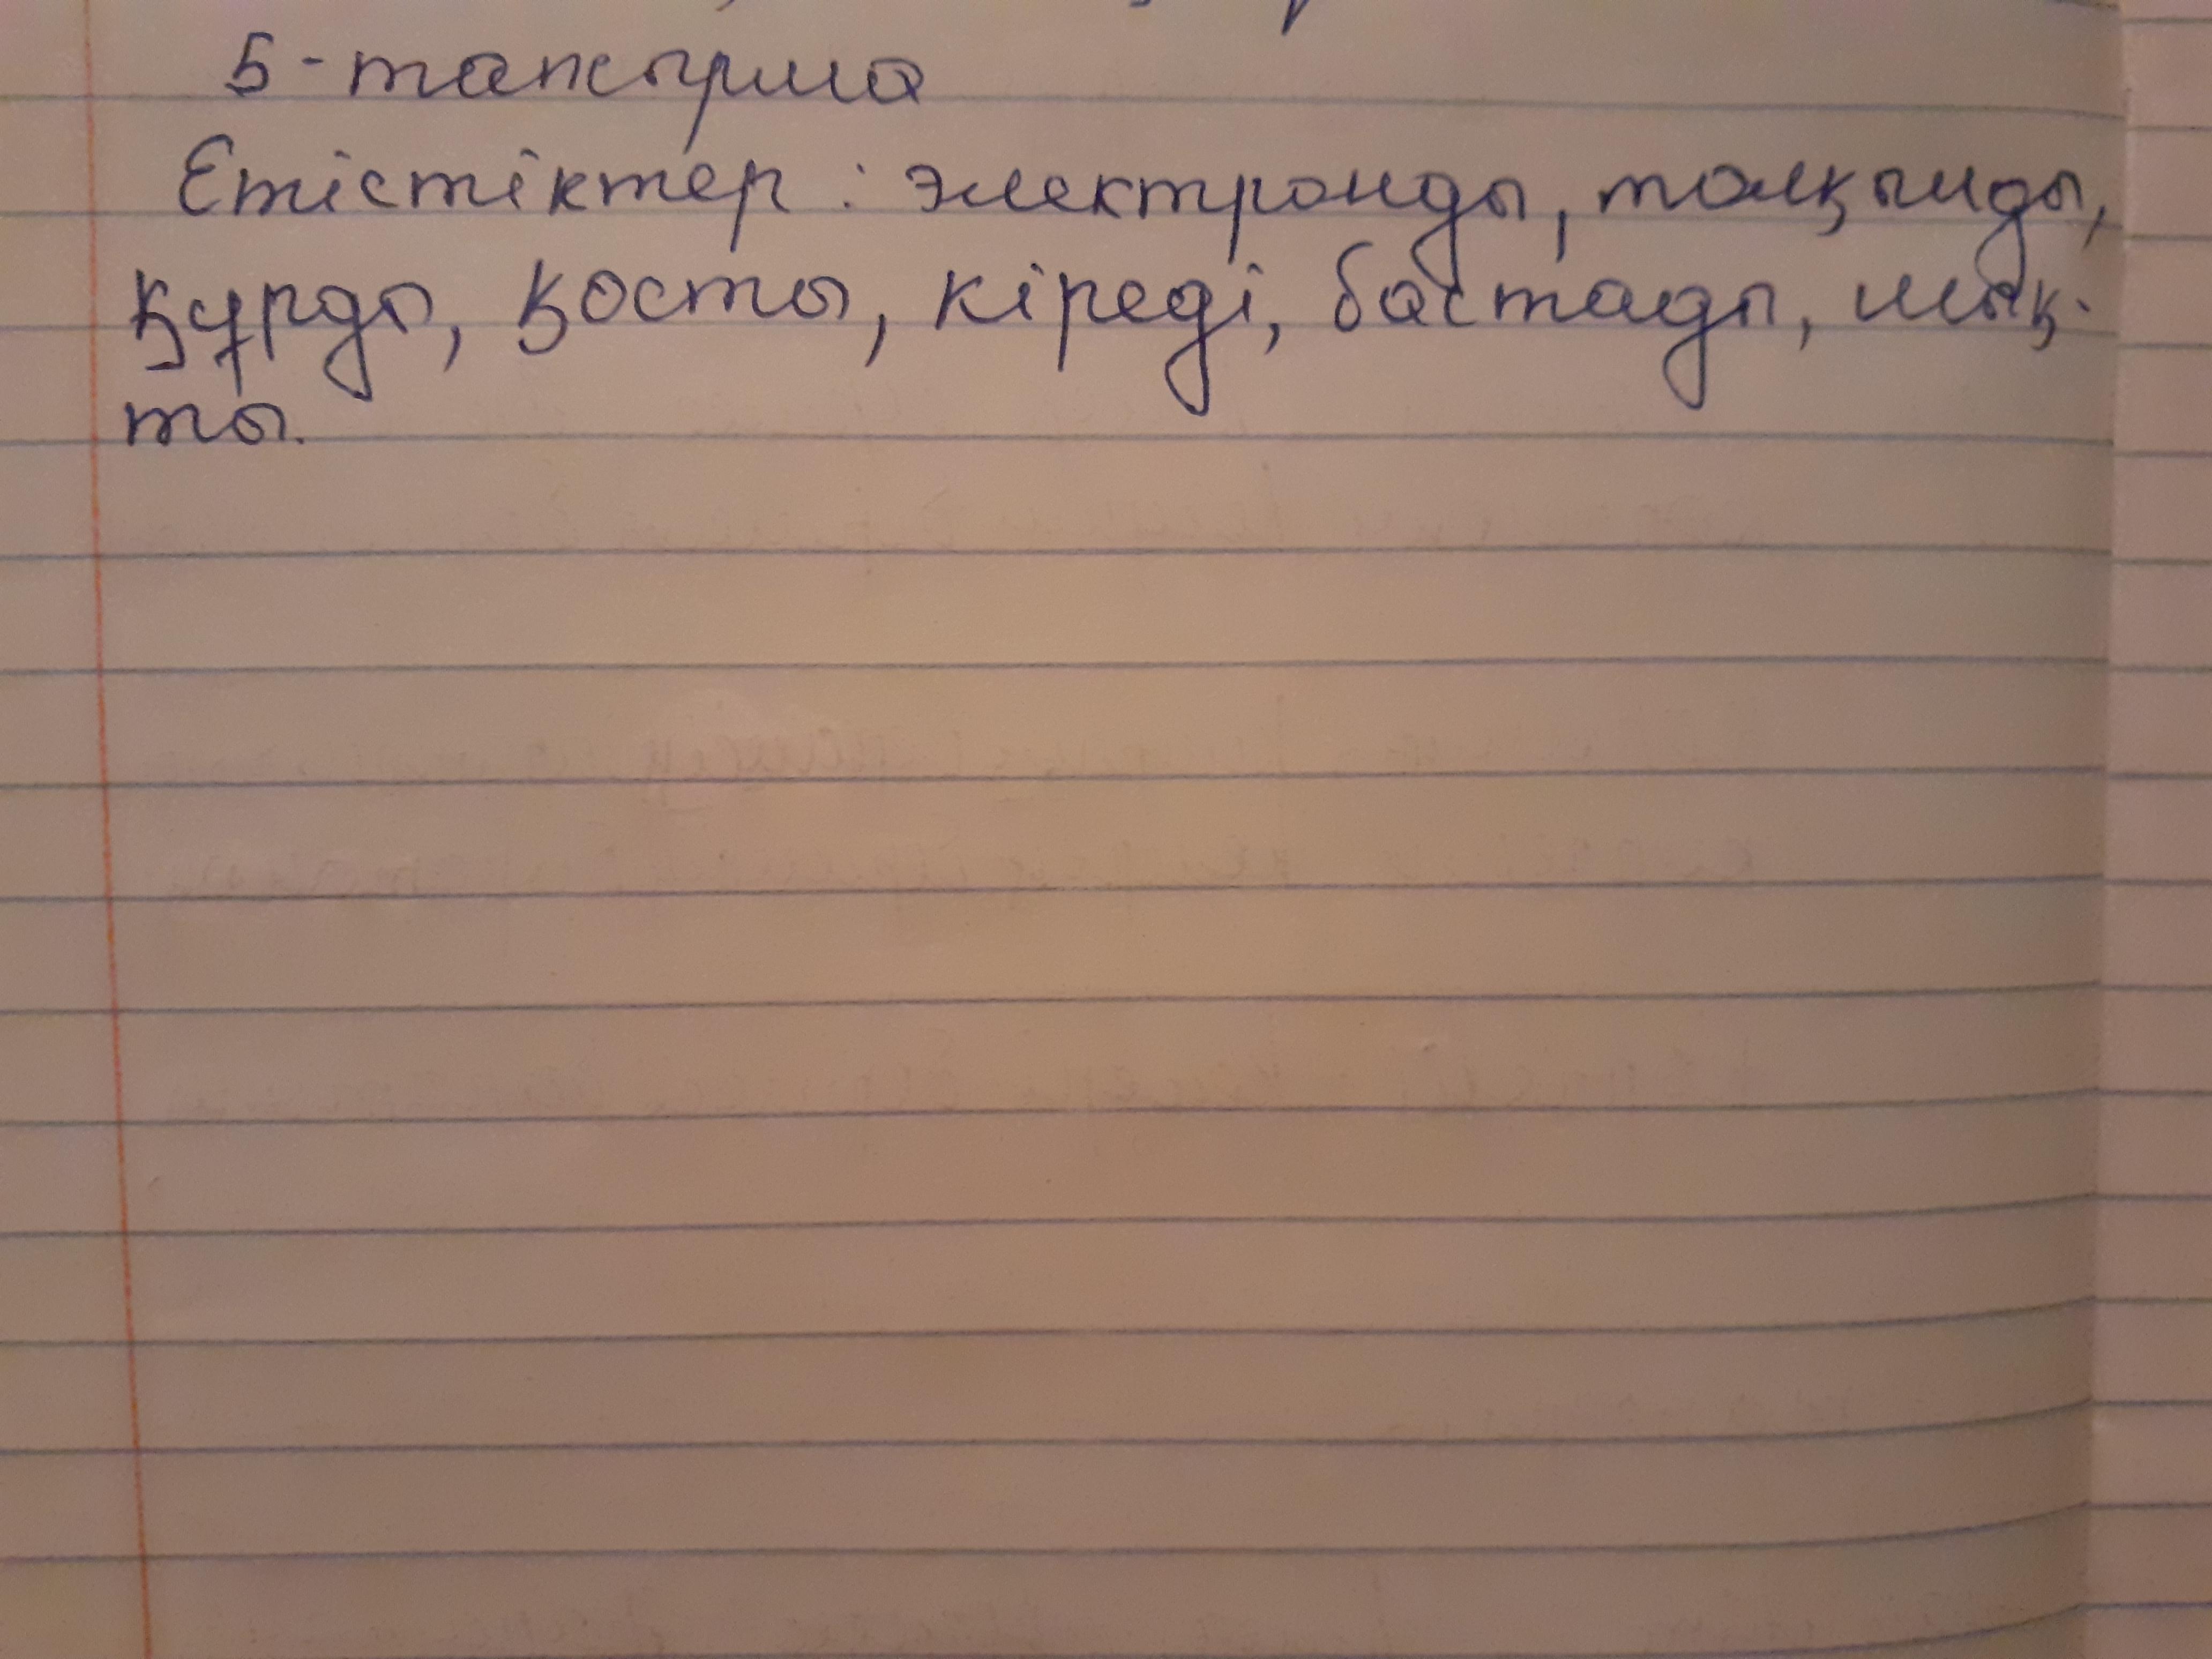 5-тапсырма
Етістіктер: электронды, толқынды,
құрды, қосты, кіреді, бастады, шық-
ты.